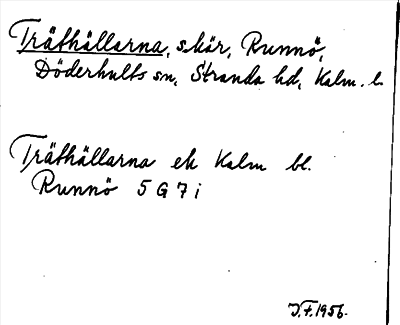 Träthällarna, skär, Runnö,
Döderhults sn, Stranda hd, Kalm. l.
Träthällarna ek Kalm bl.
Runnö 5 G 7 i
J.F. 1956.